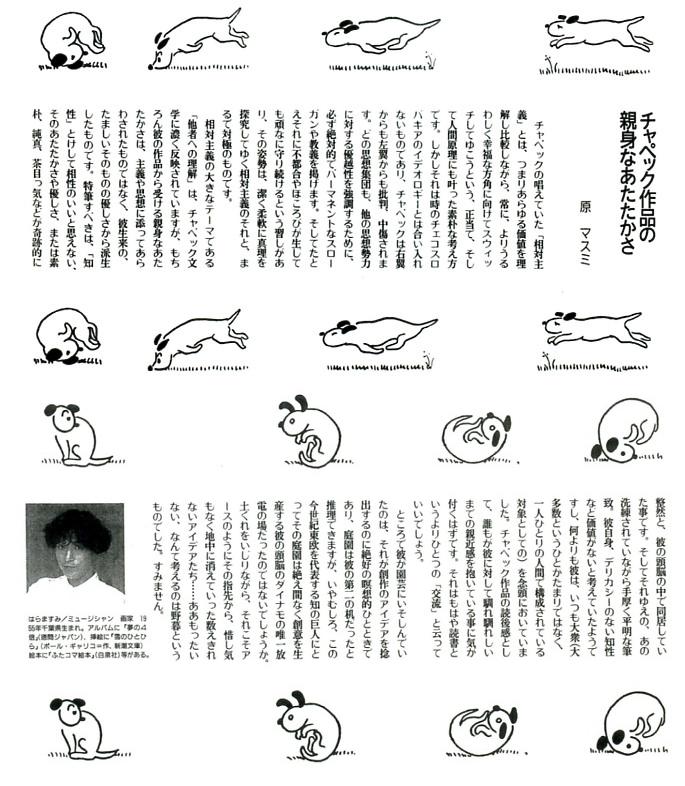 チャペック作品の
親身なあたたかさ
原　マスミ
チャペックの唱えていた「相対主
義」とは、つまりあらゆる価値を理
解し比較しながら、常に、よりうる
わしく幸福な方角に向けてスウィッ
チしてゆこうという、正当で、そし
て人間原理にも叶った素朴な考え方
です。しかしそれは時のチェコスロ
バキアのイデオロギーとは合い入れ
ないものであり、チャペックは右翼
からも左翼からも批判、中傷されま
す。どの思想集団も、他の思想勢力
に対する優越性を強調するために、
必ず絶対的でパーマネントなスロー
ガンや教義を掲げます。そしてたと
えそれに不都合やほころびが生じて
も頑なに守り続けるという習しがあ
り、その姿勢は、潔く柔軟に真理を
探究してゆく相対主義のそれと、ま
るで対極のものです。
相対主義の大きなテーマである
「他者への理解」は、チャペック文
学に濃く反映されていますが、もち
ろん彼の作品から受ける親身なあた
たかさは、主義や思想に添ってあら
わされたものではなく、彼生来の、
たましいそのものの優しさから派生
したものです。特筆すべきは、「知
性」とけして相性のいいと思えない、
そのあたたかさや優しさ、または素
朴、純真、茶目っ気などが奇跡的に
整然と、彼の頭脳の中で同居してい
た事です。そしてそれゆえの、あの
洗練されていながら手厚く平明な筆
致。彼自身、デリカシーのない知性
など価値がないと考えていたようで
すし、何よりも彼は、いつも大衆（大
多数というひとかたまりではなく、
一人ひとりの人間で構成されている
対象としての）を念頭においていま
した。チャペック作品の読後感とし
て、誰もが彼に対して馴れ馴れしい
までの親近感を抱いている事に気が
付くはずです。それはもはや読書と
いうよりひとつの「交流」と云って
いいでしょう。
ところで彼が園芸にいそしんでい
たのは、それが創作のアイデアを捻
出するのに絶好の瞑想的ひとときで
あり、庭園は彼の第二の机だったと
推理できますが、いやむしろ、この
今世紀東欧を代表する知の巨人にと
ってその庭園は絶え間なく創意を生
産する彼の頭脳のダイナモの唯一放
電の場だったのではないでしょうか。
土くれをいじりながら、それこそア
ースのようにその指先から、惜し気
もなく地中に消えていった数えきれ
ないアイデアたち……ああもったい
ない、なんて考えるのは野暮という
ものでした。すみません。
はらますみ／ミュージシャン　画家　19
55年千葉県生まれ。アルバムに「夢の4
倍」（徳間ジャパン）、挿絵に「雪のひとひ
ら」（ポール・ギャリコ＝作、新潮文庫）
絵本に「ふたコマ絵本」（白泉社）等がある。